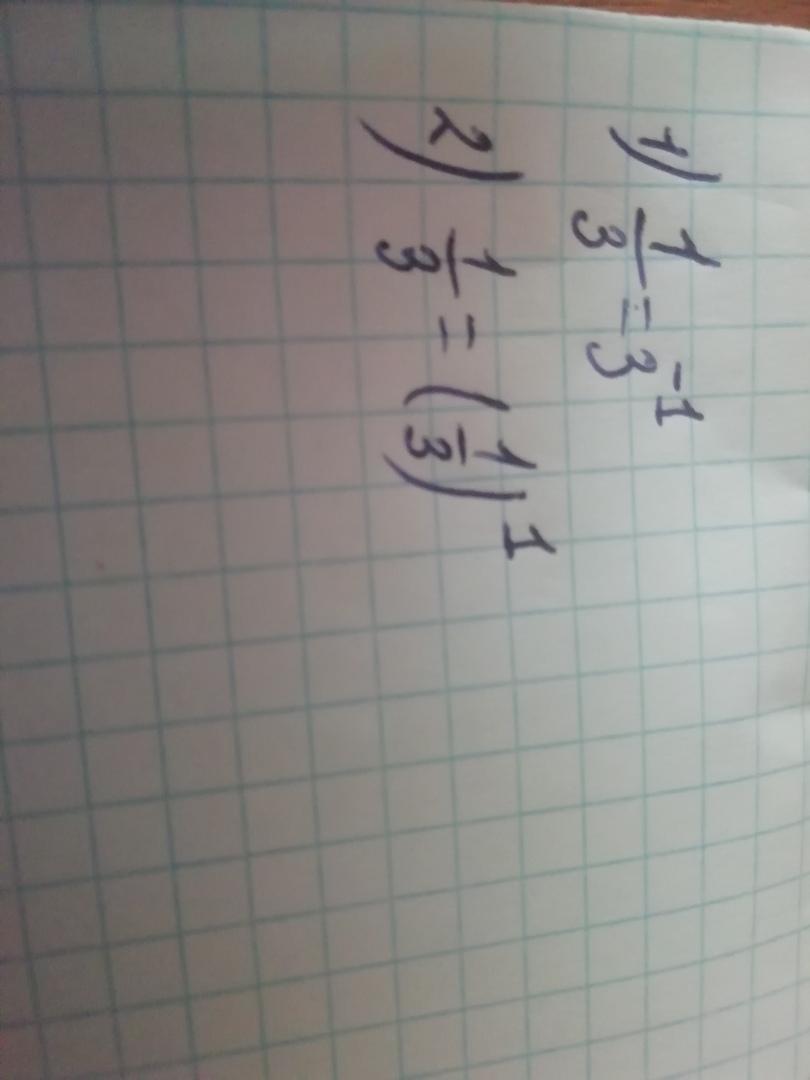 1) 1/3 = 3⁻¹
2) 1/3 = (1/3)¹